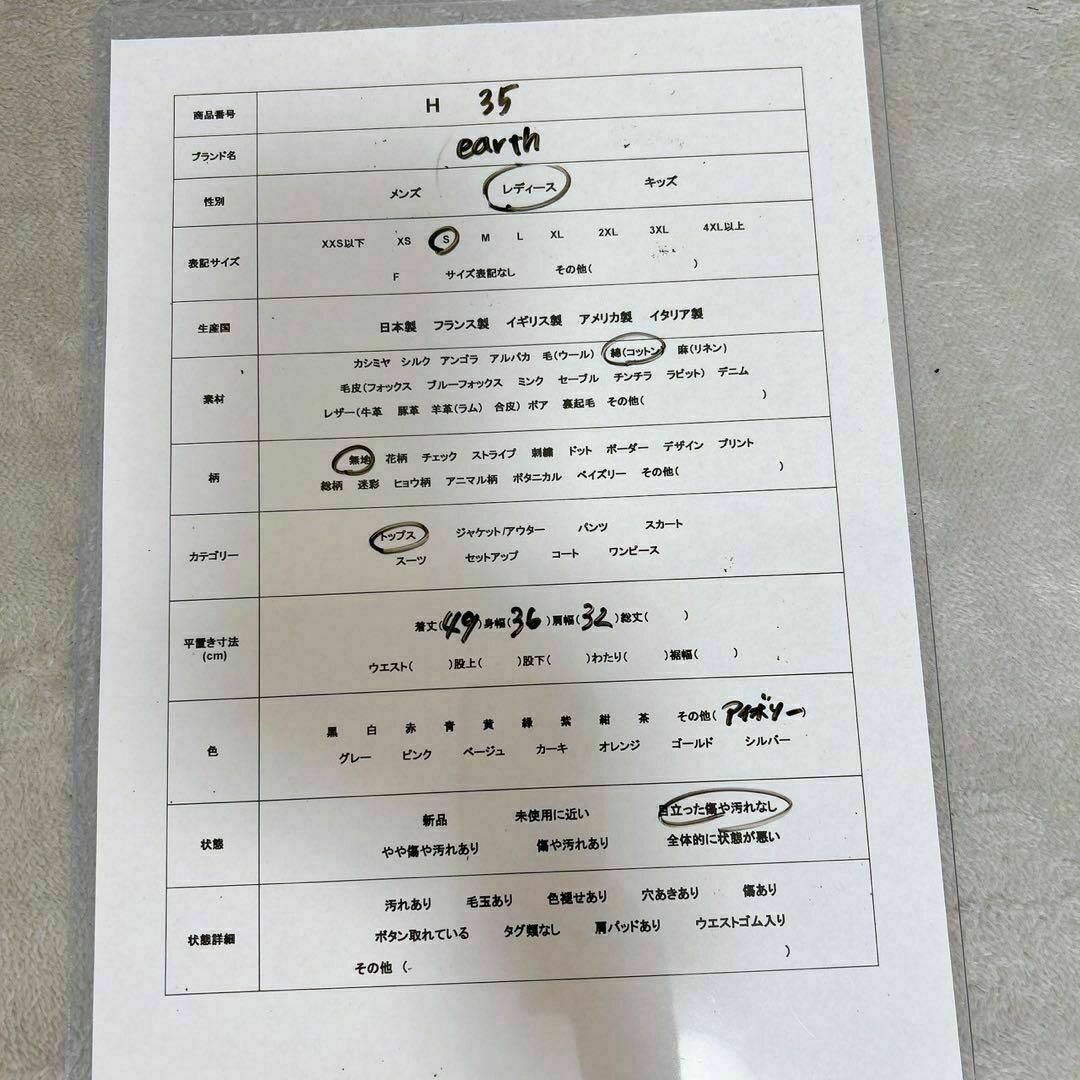 商品番号 H 35
ブランド名 earth
性別 メンズ レディース キッズ
XXS以下 XS S M L XL 2XL 3XL 4XL以上
表記サイズ
F サイズ表記なし その他( )
生産国 日本製 フランス製 イギリス製 アメリカ製 イタリア製
カシミヤ シルク アンゴラ アルパカ 毛(ウール) 綿(コットン) 麻(リネン)
素材 毛皮(フォックス ブルーフォックス ミンク セーブル チンチラ ラビット) デニム
レザー(牛革 豚革 羊革(ラム) 合皮) ボア 裏起毛 その他( )
無地 花柄 チェック ストライプ 刺繍 ドット ボーダー デザイン プリント
柄
総柄 迷彩 ヒョウ柄 アニマル柄 ボタニカル ペイズリー その他( )
トップス ジャケット/アウター パンツ スカート
カテゴリー
スーツ セットアップ コート ワンピース
着丈(49)身幅(36)肩幅(32)総丈( )
平置き寸法
(cm)
ウエスト( )股上( )股下( )わたり( )裾幅( )
黒 白 赤 青 黄 緑 紫 紺 茶 その他(アイボリー)
色
グレー ピンク ベージュ カーキ オレンジ ゴールド シルバー
新品 未使用に近い 目立った傷や汚れなし
状態
やや傷や汚れあり 傷や汚れあり 全体的に状態が悪い
汚れあり 毛玉あり 色褪せあり 穴あきあり 傷あり
状態詳細 ボタン取れている タグ類なし 肩パッドあり ウエストゴム入り
その他 ( )